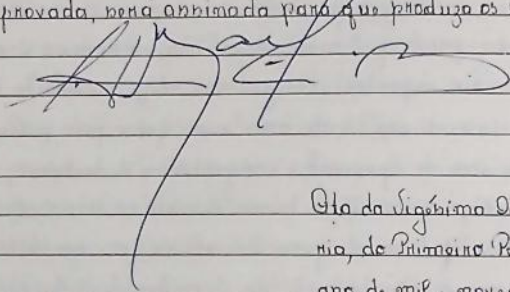 provada, será assinada para que produza os
Ata da Vigésima O
ria, do Primeiro Pe
ano de mil, nove